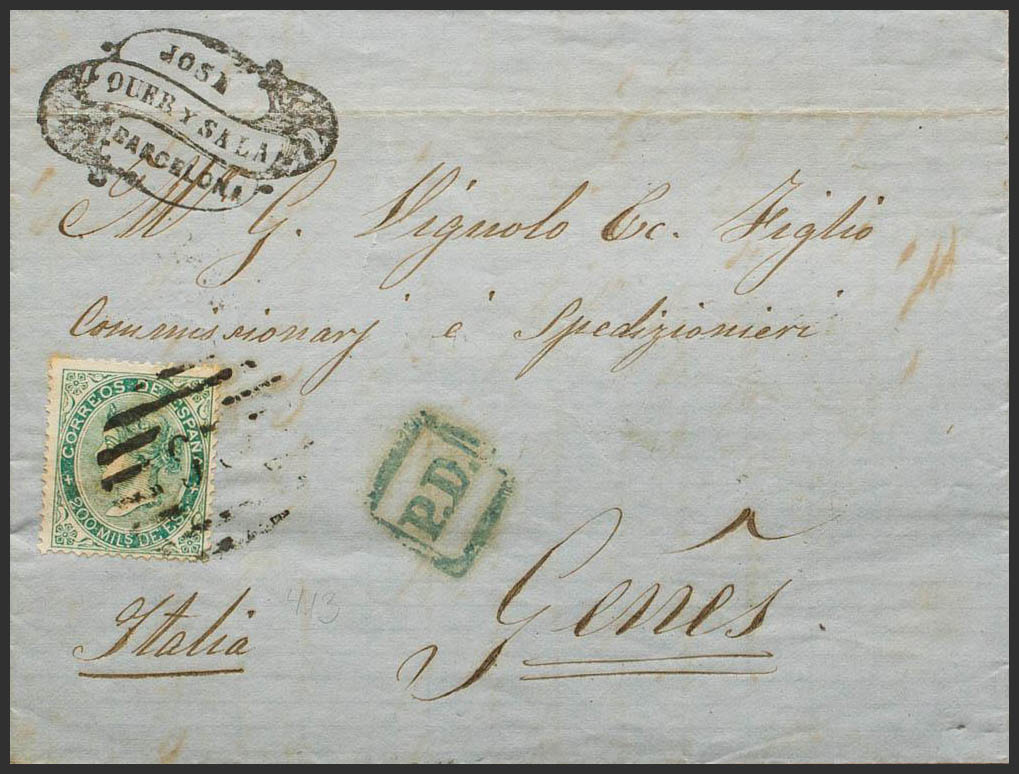 JOSÉ
QUER Y SALA
BARCELONA
Mr G. Vignolo Ec. Figlio
Commissionarj è Spedizionieri
CORREOS DE ESPAÑA
200 MILS DE ES
P.D.
Genês.
Italia
443